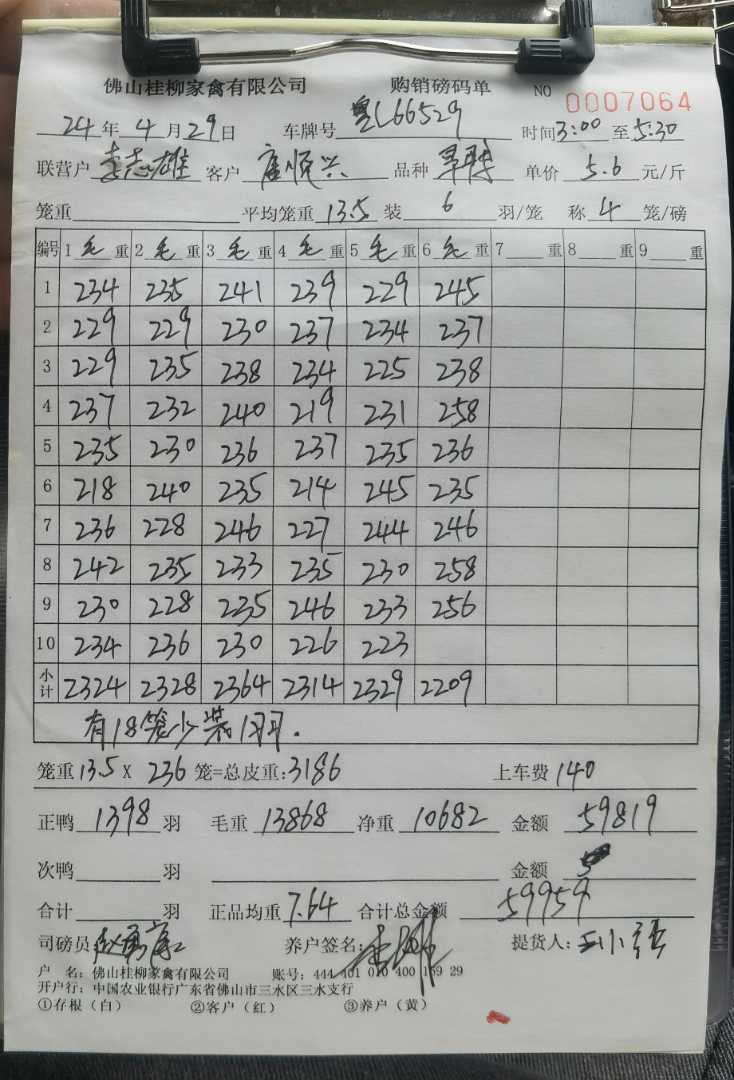 佛山桂柳家禽有限公司 购销磅码单 NO 0007064
24年4月29日 车牌号 粤L66529 时间3:00至5:30
联营户 李志雄 客户 唐顺兴 品种 单价 5.6 元/斤
笼重 平均笼重 13.5 装 6 羽/笼 称 4 笼/磅
编号 1毛重 2毛重 3毛重 4毛重 5毛重 6毛重 7重 8重 9重
1 234 235 241 239 229 245
2 229 229 230 237 234 237
3 229 235 238 234 225 238
4 237 232 240 219 231 258
5 235 230 236 237 235 236
6 218 240 235 214 245 235
7 236 228 246 227 244 246
8 242 235 233 235 230 258
9 230 228 235 246 233 256
10 234 236 230 226 223
小计 2324 2328 2364 2314 2329 2209
有18笼少装1羽.
笼重13.5X 236 笼=总皮重:3186 上车费 140
正鸭 1398 羽 毛重 13868 净重 10682 金额 59819
次鸭 羽 金额
合计 羽 正品均重 7.64 合计总金额 59959
司磅员 养户签名: 提货人:
户 名:佛山桂柳家禽有限公司 账号:444 401 010 400 159 29
开户行:中国农业银行广东省佛山市三水区三水支行
①存根(白) ②客户(红) ③养户(黄)